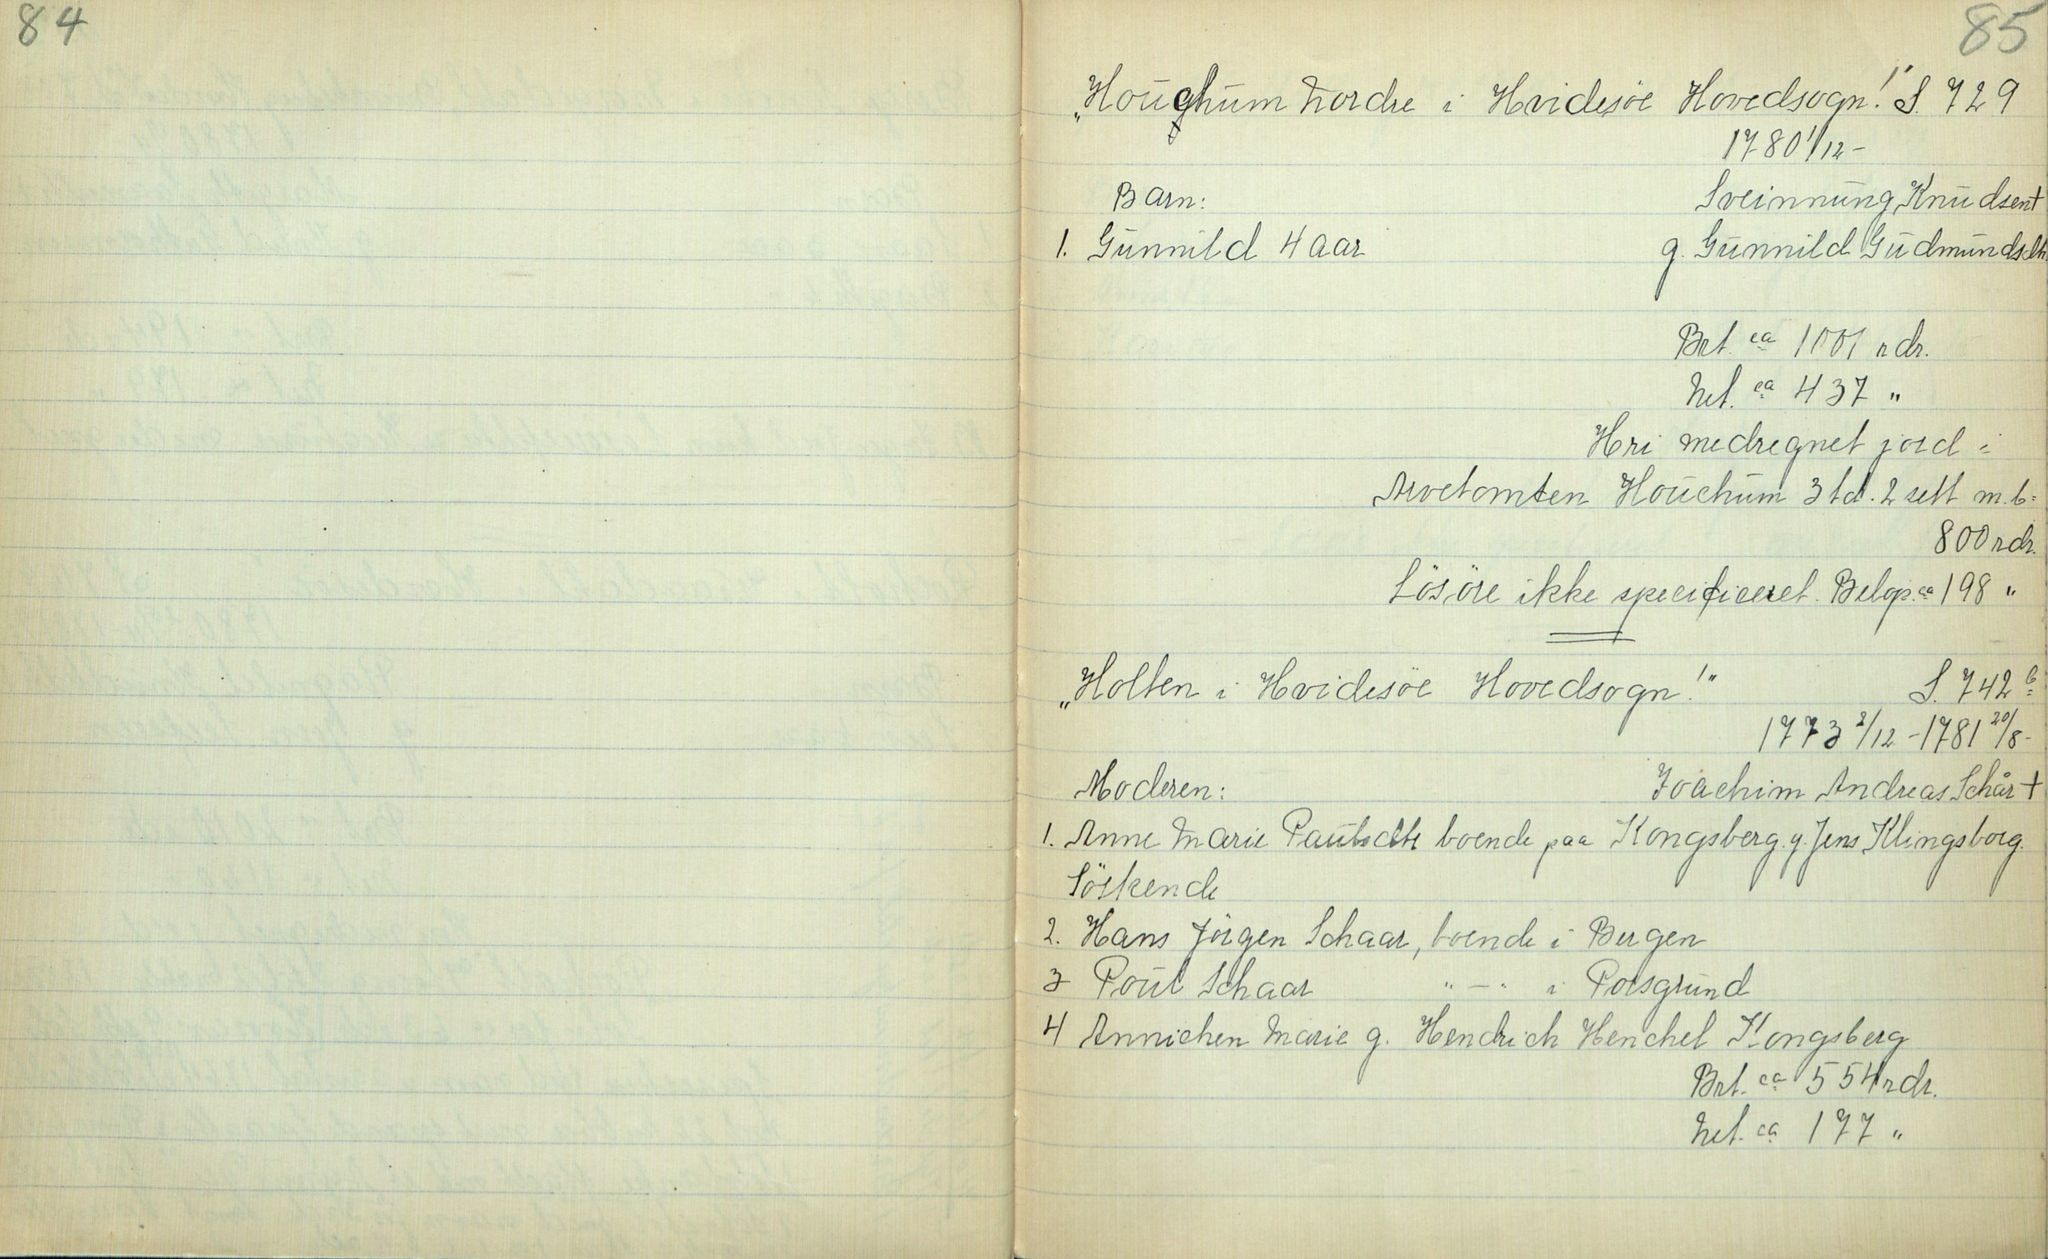 84
85
„Houghum Nordre i Hvidesøe Hovedsogn!" S. 729
1780 1/12 -
Barn:
Sveinnung Knudsen †
1. Gunnild 4 aar
g. Gunnild Gudmundsdtr.
Brt. ca 1001 rdr.
Net. ca 437 "
Hri medregnet jord i
Arvetomten Houchum 3 td. 2 sett m.b:
800 rdr.
Lösöre ikke specificeret. Beløp. ca 198 "
„Holten i Hvidesøe Hovedsogn!" S. 742 b
1773 2/12 - 1781 20/8 -
Moderen:
Joachim Andreas Schår †
1. Anne Marie Paulsdtr boende paa Kongsberg. g. Jens Klingsborg.
Söskende
2. Hans Jörgen Schaar, boende i Bergen
3 Poul Schaar " - " i Porsgrund
4 Annichen Marie g. Hendrich Henchel Kongsberg
Brt. ca 554 rdr.
Net. ca 177 "